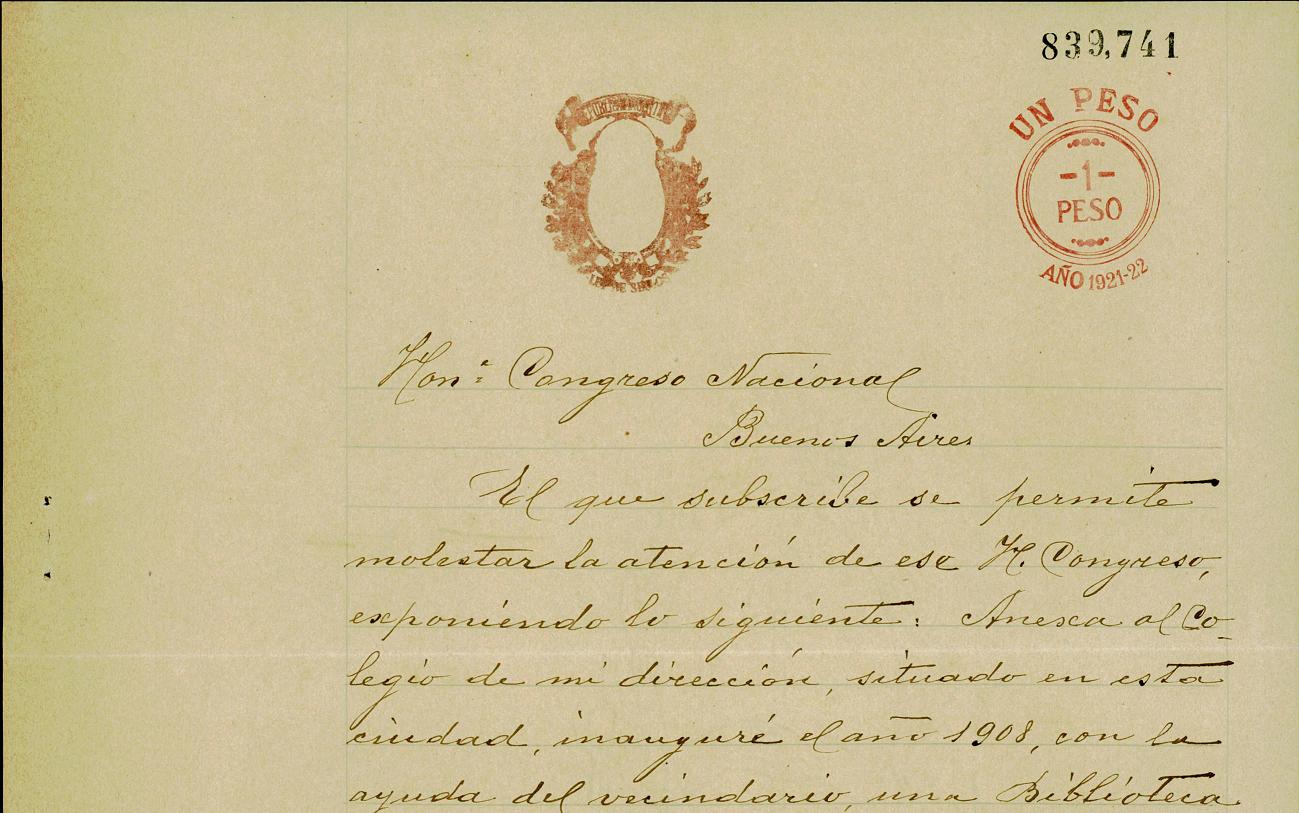 839,741
UN PESO
-1-
PESO
AÑO 1921-22
LEY DE SELLOS
Hon.e Congreso Nacional
Buenos Aires
El que subscribe se permite
molestar la atención de ese H. Congreso,
exponiendo lo siguiente: Anexa al Co-
legio de mi dirección, situado en esta
ciudad, inauguré el año 1908, con la
ayuda del vecindario, una Biblioteca